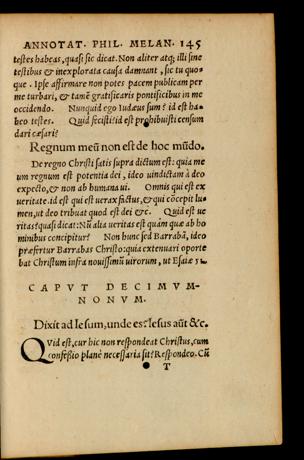 ANNOTAT. PHIL. MELAN. 145
testes habeas, quasi sic dicat. Non aliter atq; illi sine
testibus & inexplorata causa damnant, sic tu quo-
que. Ipse affirmare non potes pacem publicam per
me turbari, & tamē gratificaris pontificibus in me
occidendo. Nunquid ego Iudæus sum? id est ha-
beo testes. Quid fecisti? id est prohibuisti censum
dari cæsari?
Regnum meũ non est de hoc mũdo.
De regno Christi satis supra dictum est: quia me
um regnum est potentia dei, ideo uindictam à deo
expecto, & non ab humana ui. Omnis qui est ex
ueritate. id est qui est uerax factus, & qui cōcepit lu-
men, ut deo tribuat quod est dei &c. Quid est ue
ritas? quasi dicat: Nũ alia ueritas est quàm quæ ab ho
minibus concipitur? Non hunc sed Barrabã, ideo
præfertur Barrabas Christo: quia extenuari oporte
bat Christum infra nouissimũ uirorum, ut Esaiæ 53.
CAPVT DECIMVM-
NONVM.
Dixit ad Iesum, unde es? Iesus aũt &c.
QVid est, cur hic non respondeat Christus, cum
confessio planè necessaria sit? Respondeo. Cũ
T